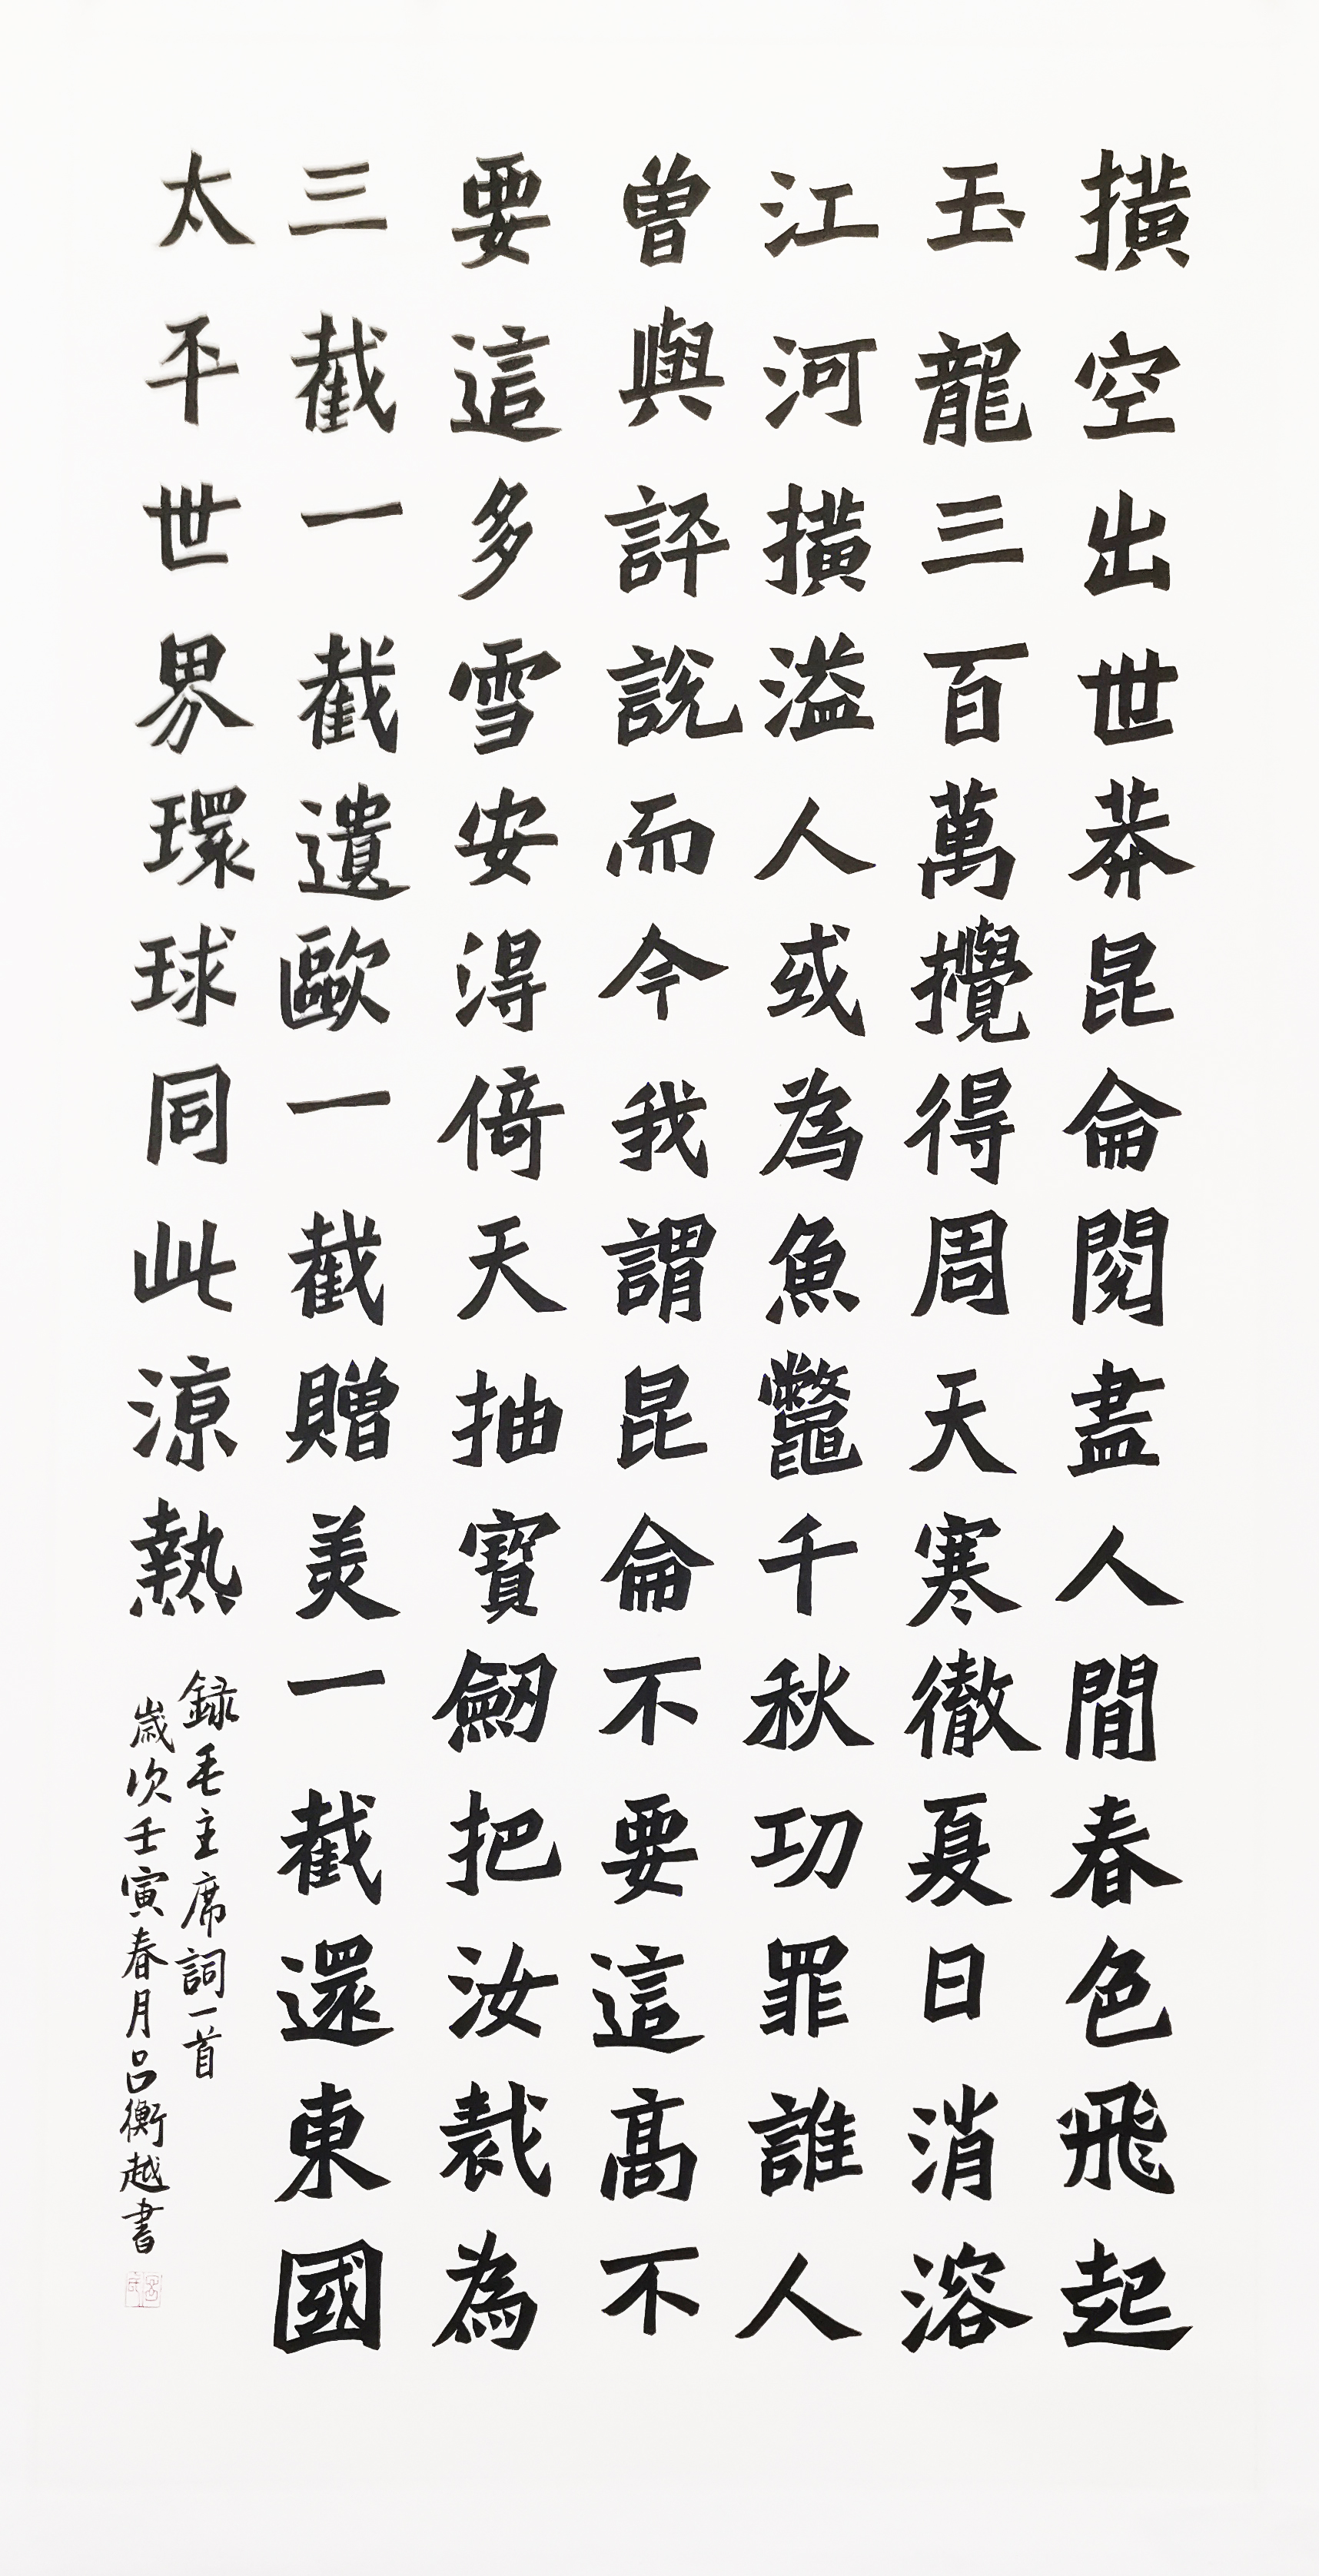 撗空出世莽昆侖閱盡人間春色飛起
玉龍三百萬攪得周天寒徹夏日消溶
江河撗溢人或為魚鼈千秋功罪誰人
曾與評說而今我謂昆侖不要這高不
要這多雪安淂倚天抽寶劒把汝裁為
三截一截遺歐一截贈美一截還東國
太平世界環球同此涼熱
録毛主席詞一首
歲次壬寅春月吕衡越書